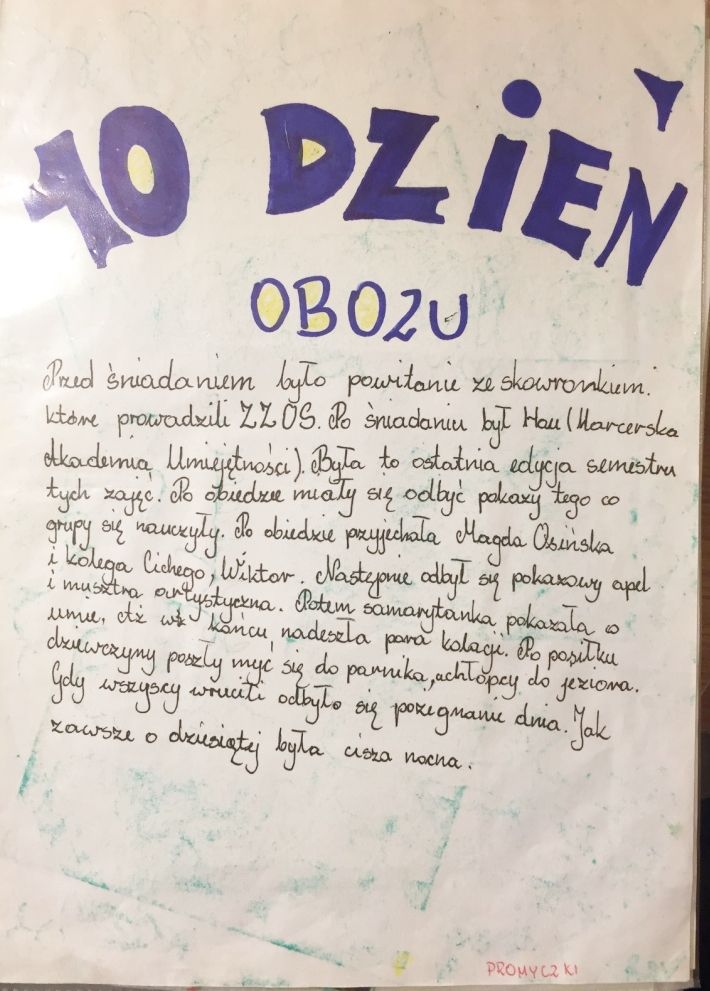 10 DZIEŃ
OBOZU
Przed śniadaniem było powitanie ze skowronkiem.
które prowadzili ZZ OS. Po śniadaniu był Hau (Harcerska
Akademia Umiejętności). Była to ostatnia edycja semestru
tych zajęć. Po obiedzie miały się odbyć pokazy tego co
grupy się nauczyły. Po obiedzie przyjechała Magda Osińska
i kolega Cichego, Wiktor. Następnie odbył się pokazowy apel
i musztra artystyczna. Potem samarytanka pokazała co
umie, aż w końcu nadeszła pora kolacji. Po posiłku
dziewczyny poszły myć się do parnika, a chłopcy do jeziora.
Gdy wszyscy wrócili odbyło się pożegnanie dnia. Jak
zawsze o dziesiątej była cisza nocna.
PROMYCZKI